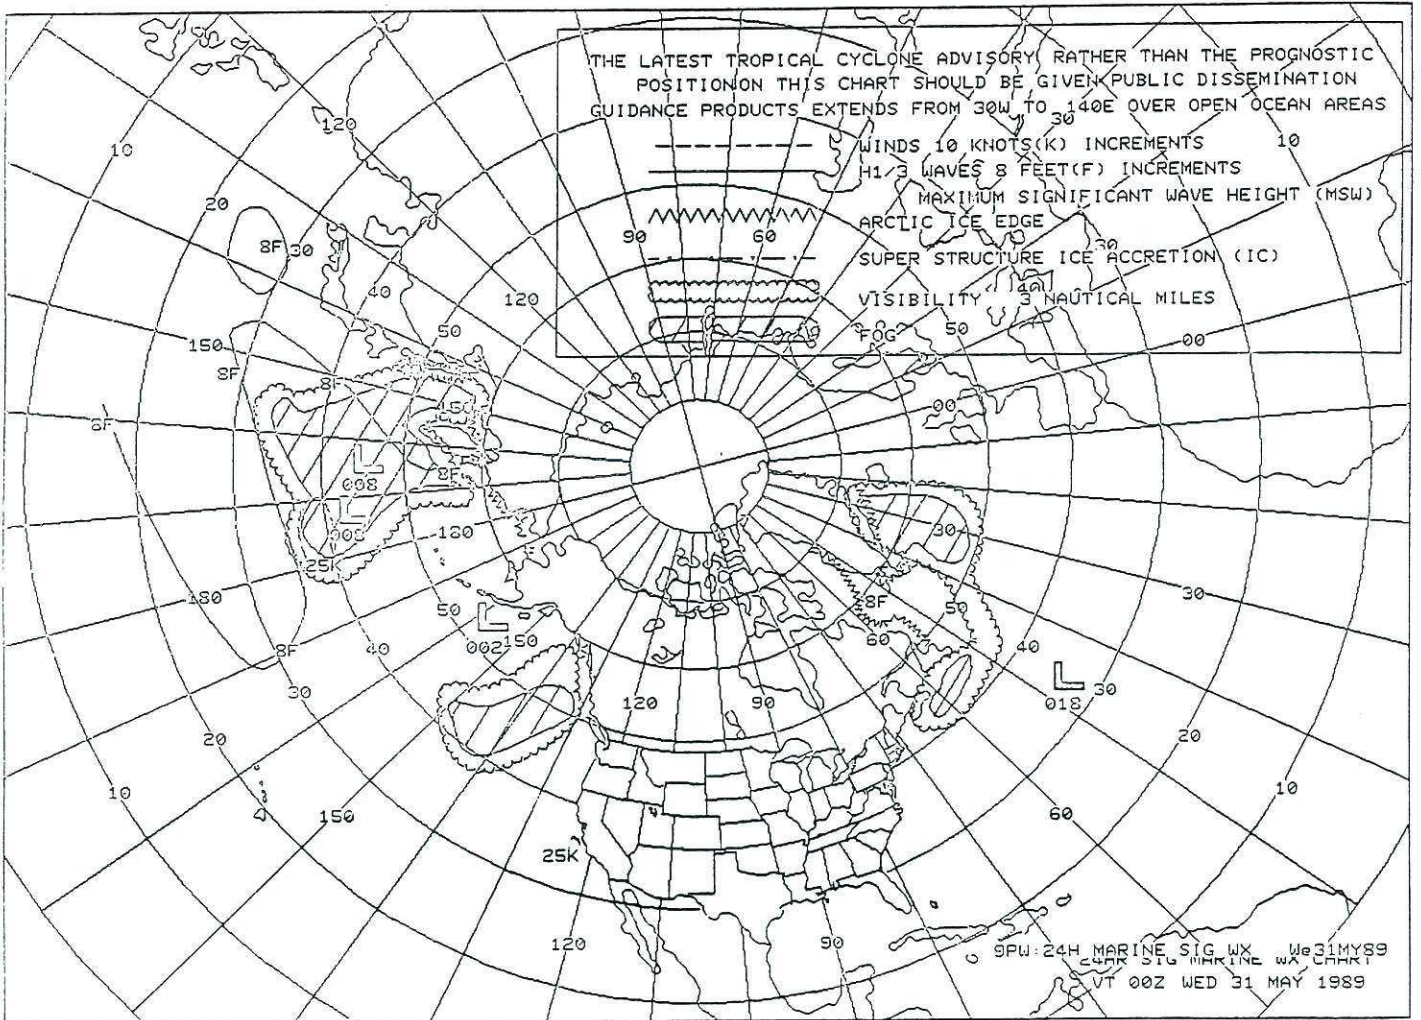 THE LATEST TROPICAL CYCLONE ADVISORY RATHER THAN THE PROGNOSTIC
POSITION ON THIS CHART SHOULD BE GIVEN PUBLIC DISSEMINATION
GUIDANCE PRODUCTS EXTENDS FROM 30W TO 140E OVER OPEN OCEAN AREAS
120
30
10
WINDS 10 KNOTS(K) INCREMENTS
10
H1/3 WAVES 8 FEET(F) INCREMENTS
MAXIMUM SIGNIFICANT WAVE HEIGHT (MSW)
20
ARCTIC ICE EDGE
90
60
8F
30
30
SUPER STRUCTURE ICE ACCRETION (IC)
40
120
40
VISIBILITY 3 NAUTICAL MILES
50
50
FOG
150
00
8F
8F
150
00
8F
L
8F
008
L
008
180
30
25K
180
30
50
8F
50
L
002
150
60
40
40
8F
L
30
018
30
120
90
20
20
10
10
150
60
25K
120
90
9PW:24H MARINE SIG WX We31MY89
24HR SIG MARINE WX CHART
VT 00Z WED 31 MAY 1989